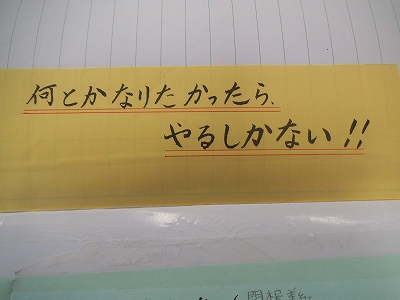 何とかなりたかったら、
やるしかない!!